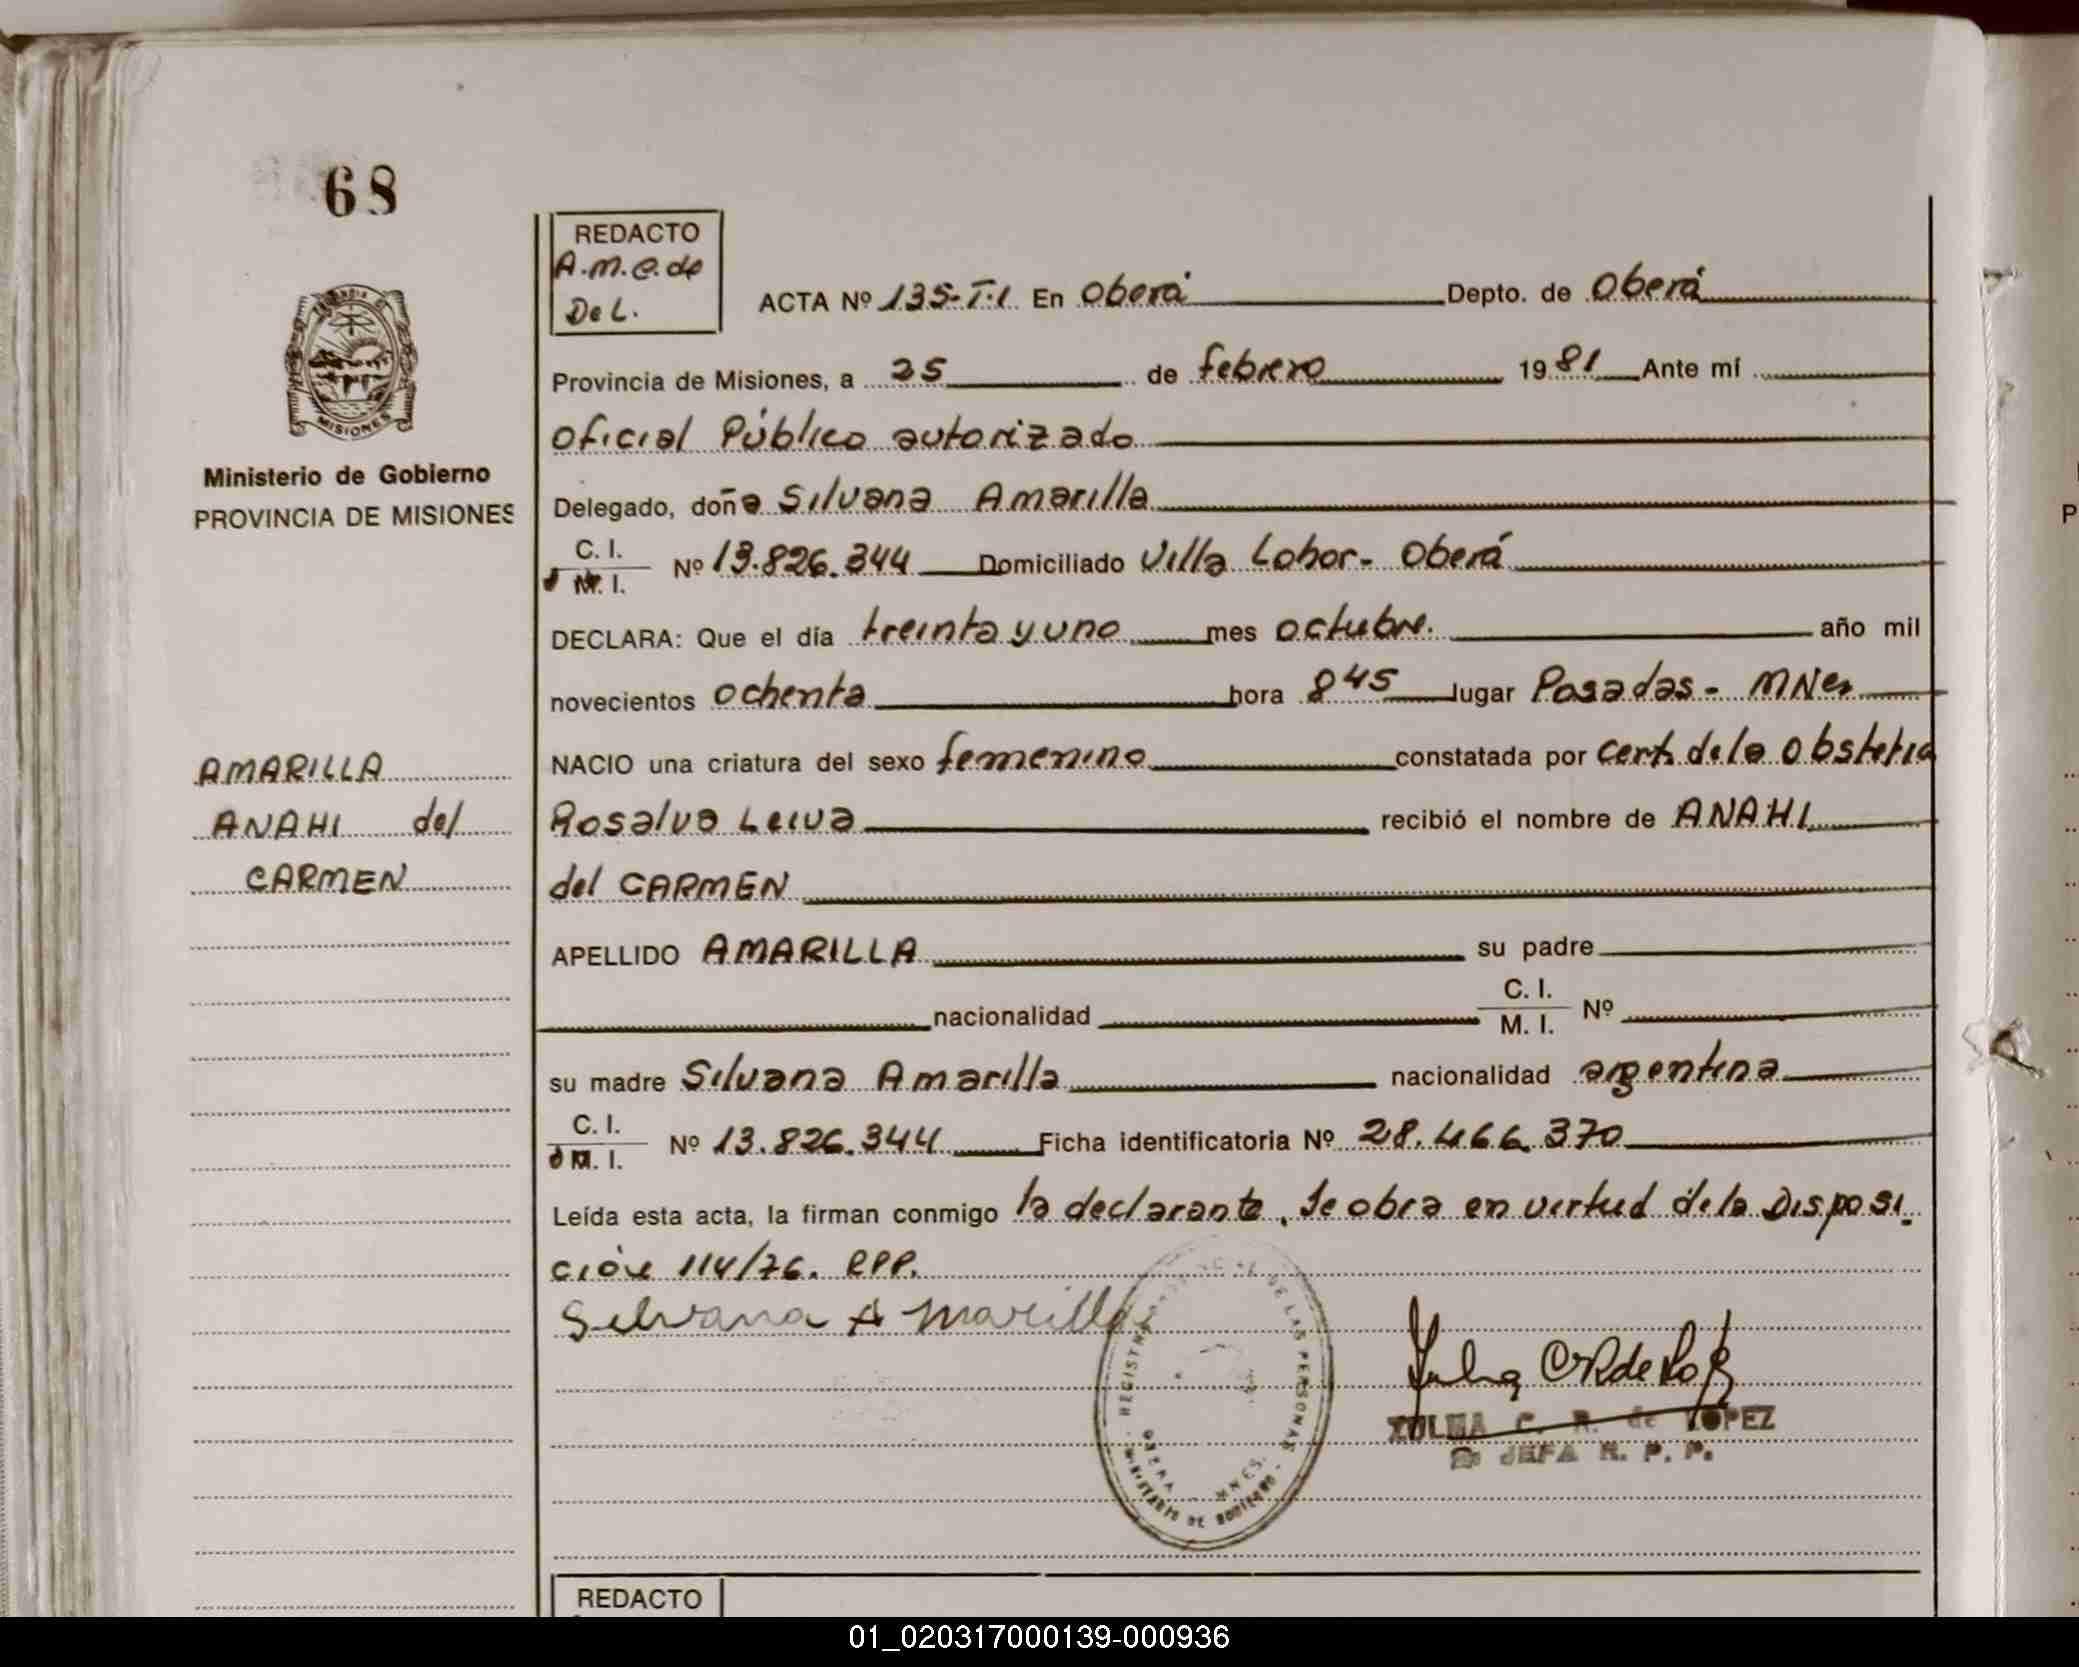 68
REDACTO
A.M.C. de
De L.
ACTA Nº 135-T.I En Oberá Depto. de Oberá
Provincia de Misiones, a 25 de febrero 1981 Ante mí
Oficial Público autorizado
MISIONES
Ministerio de Gobierno
PROVINCIA DE MISIONES
Delegado, doña Silvana Amarilla
C. I.
M. I. Nº 13.826.344 Domiciliado Villa Oberá
DECLARA: Que el día treinta y uno mes octubre. año mil
novecientos ochenta hora 8 45 lugar Posadas - MNes
AMARILLA
ANAHI del
CARMEN
NACIO una criatura del sexo femenino constatada por Cert. de la Obstetra
Rosalva Leiva recibió el nombre de ANAHI
del CARMEN
APELLIDO AMARILLA su padre
nacionalidad C. I.
M. I. Nº
su madre Silvana Amarilla nacionalidad argentina
C. I.
M. I. Nº 13.826.344 Ficha identificatoria Nº 28.466.370
Leída esta acta, la firman conmigo la declarante. Se obra en virtud de la Disposi-
ción 114/76. RPP.
Silvana Amarilla
REGISTRO DE LAS PERSONAS
OBERA MNES.
MINISTERIO DE GOBIERNO
ZULMA C. R. de LOPEZ
JEFA R. P. P.
REDACTO
P
01_020317000139-000936